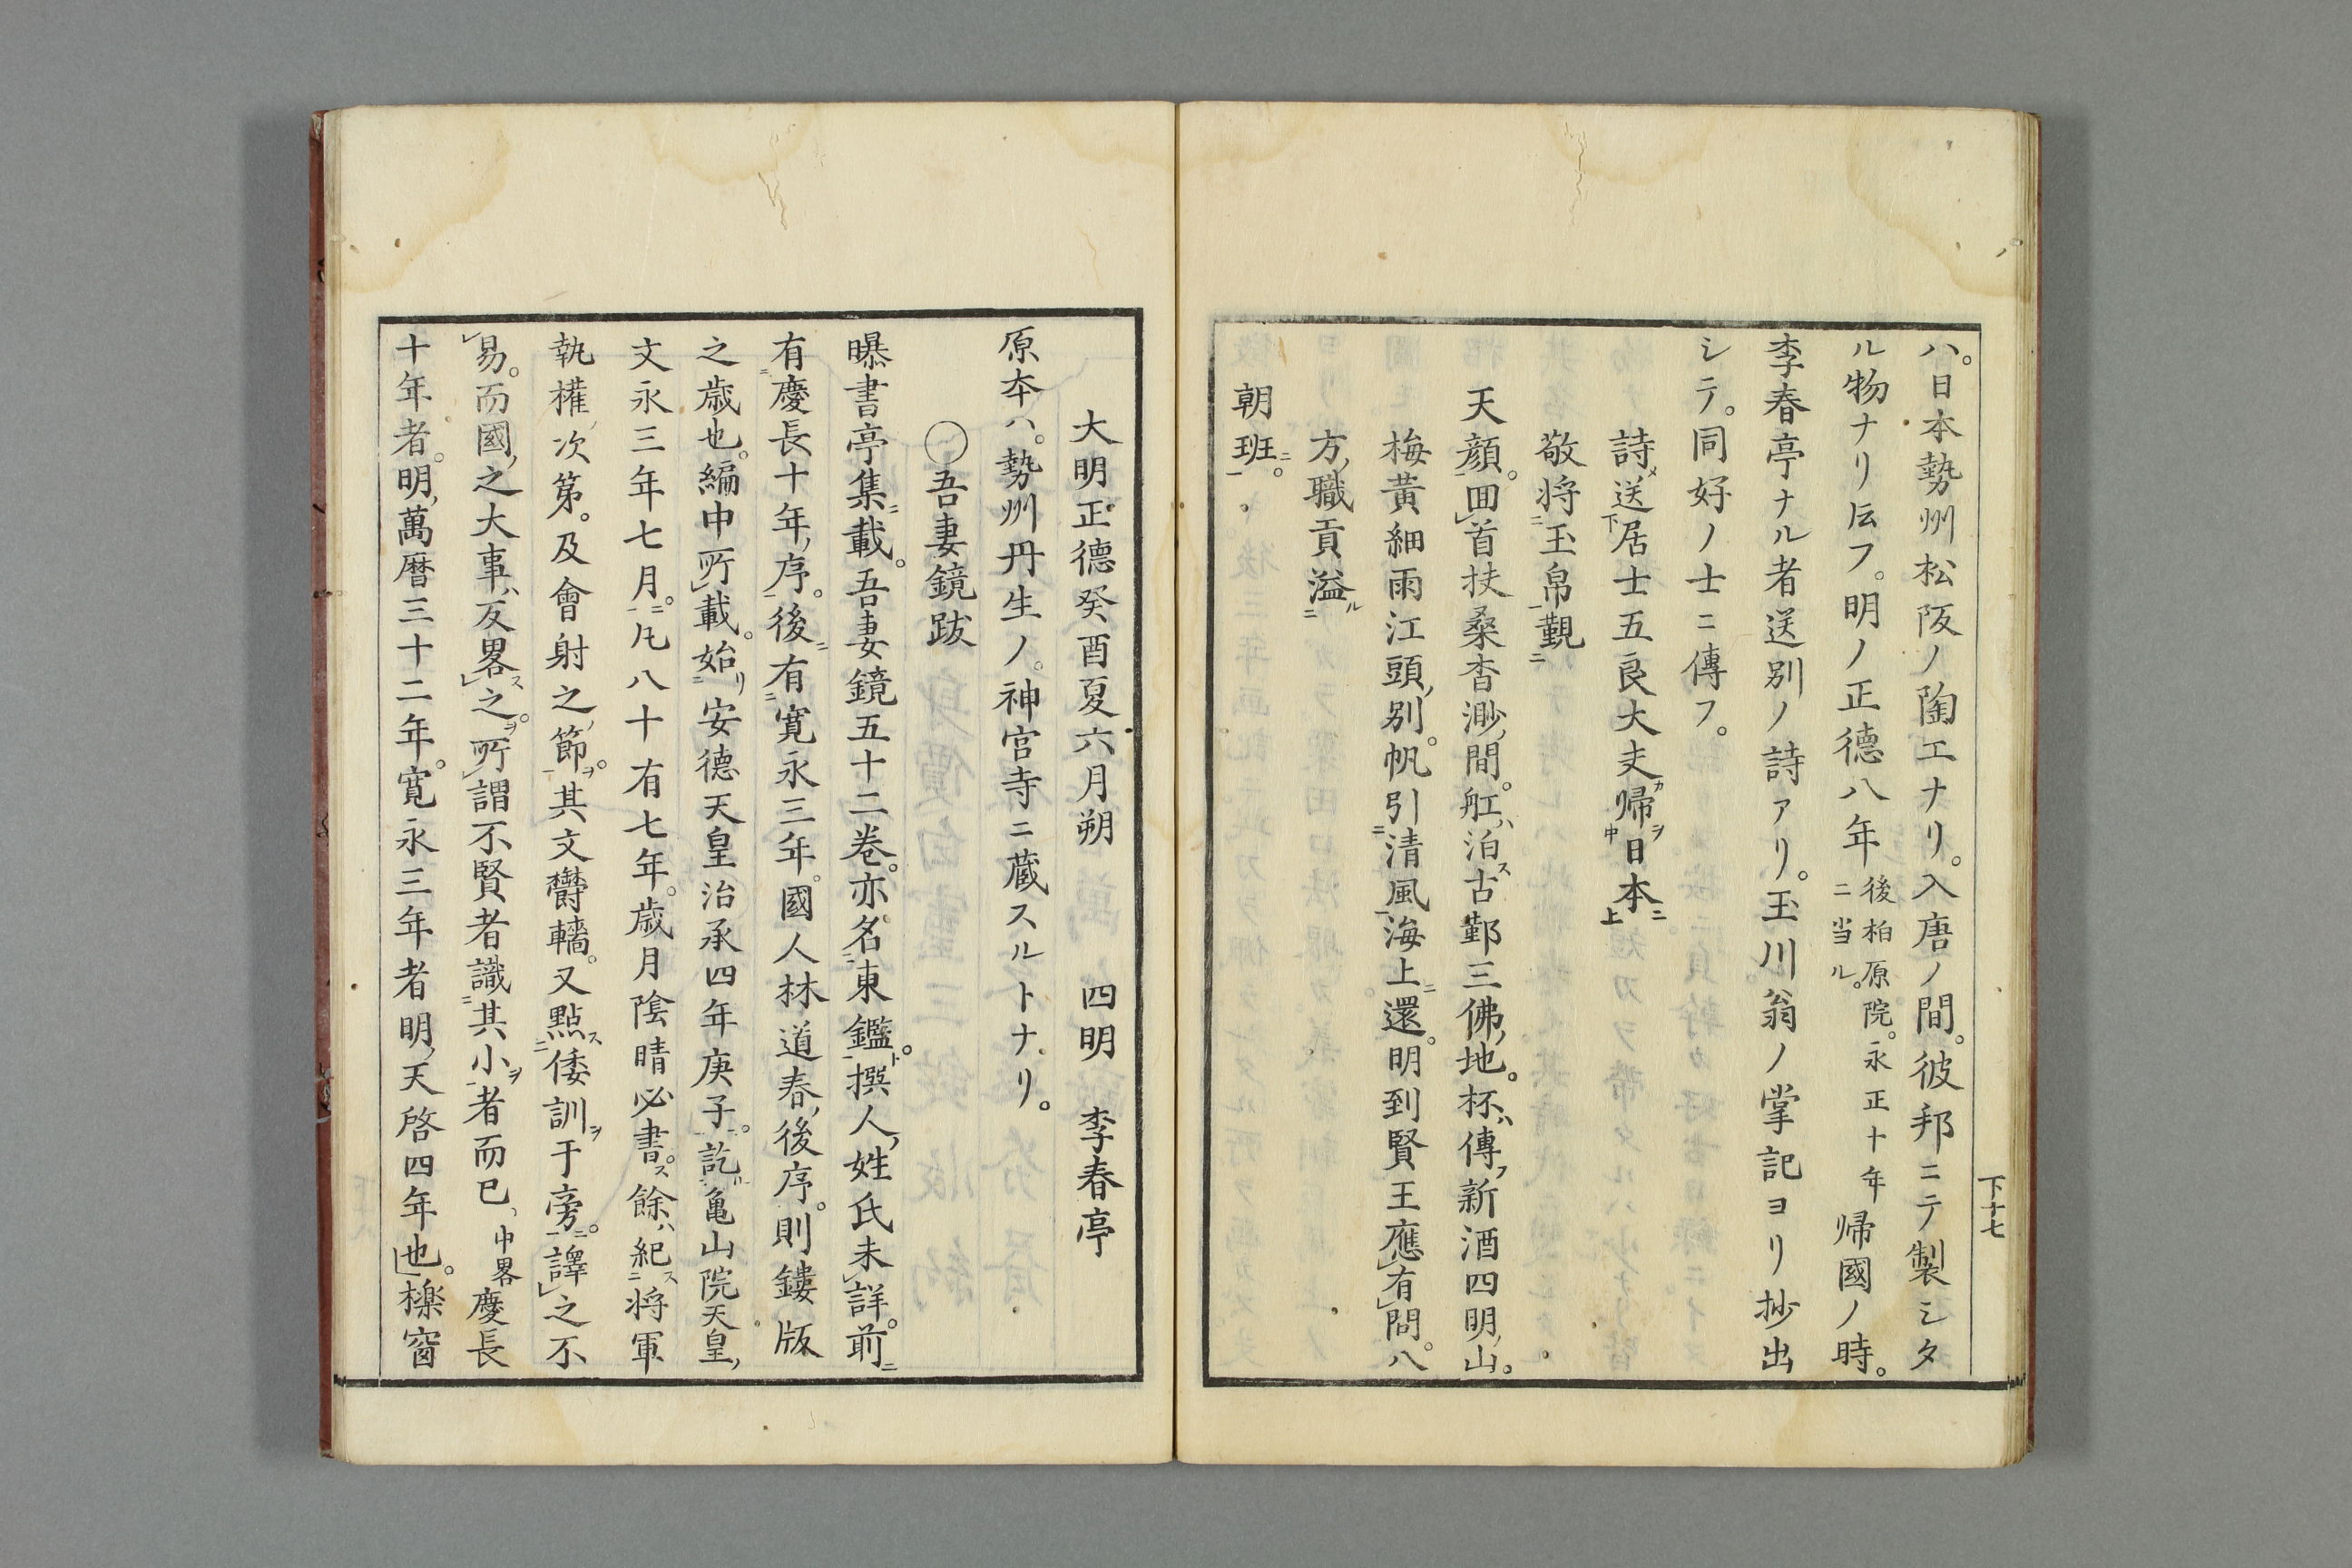 ハ。日本勢州松阪ノ陶工ナリ。入唐ノ間。彼邦ニテ製シタ
ル物ナリ伝フ。明ノ正德八年後柏原院。永正十年ニ当ル。帰國ノ時。
李春亭ナル者送別ノ詩アリ。玉川翁ノ掌記ヨリ抄出
シテ。同好ノ士ニ傳フ。
詩送居士五良大夫帰日本
敬将玉帛覲
天顔。囬首扶桑杳渺間。舡泊古鄞三佛地。杯傳新酒四明山。
梅黄細雨江頭別。帆引清風海上還。明到賢王應有問。八
方職貢溢
朝班。
下十七
大明正德癸酉夏六月朔 四明 李春亭
原本ハ。勢州丹生ノ。神宮寺ニ蔵スルトナリ。
○吾妻鏡跋
曝書亭集載。吾妻鏡五十二巻。亦名東鑑。撰人姓氏未詳。前
有慶長十年序。後有寛永三年。國人林道春後序。則鏤版
之歳也。編中所載。始安德天皇治承四年庚子。訖亀山院天皇
文永三年七月。凡八十有七年。歳月陰晴必書。餘紀将軍
執權次第。及會射之節。其文欝轖。又點倭訓于旁。譯之不
易。而國之大事反畧之。所謂不賢者識其小者而已中畧慶長
十年者。明萬暦三十二年。寛永三年者明天啓四年也。檪窗